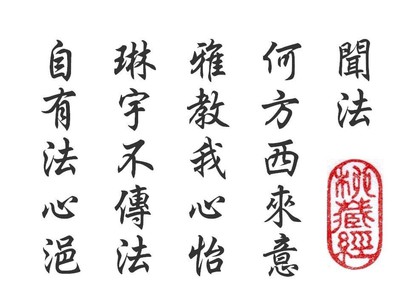 聞法
何方西來意
雅教我心怡
琳宇不傳法
自有法心浥
秘藏經